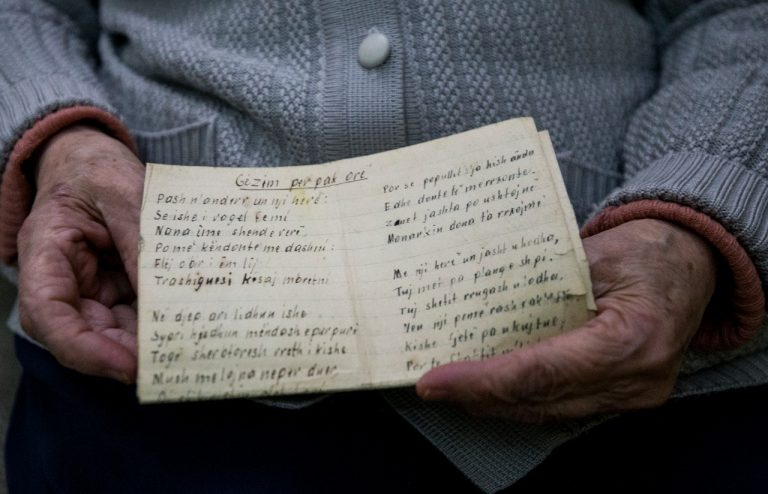 Gëzim per pak orë
Pash n'anderr un nji herë:
Se ishe i vogel femi
Nana ime shendeverë
Po më këndonte me dashni:
Flej o bir i em lij
Trashiguesi kësaj mbretni
Në djep ari lidhun ishe
Syari hjedhun mëndash e per purë
Togë sherbtoresh rreth i kishe
Mush me loj na neper duer
Por se popullit s'ja kish ënda
Edhe donte të merezonte
zanet jashta po ushtojnë
Monark'in dona ta rrxojmë
Me nji herë un jasht u hodha,
Tuj mët pa plang e shpi.
Tuj shetit rrugash u lodha,
Nën nji peme rash
Kishe fjetë pa u kujtue,
Por